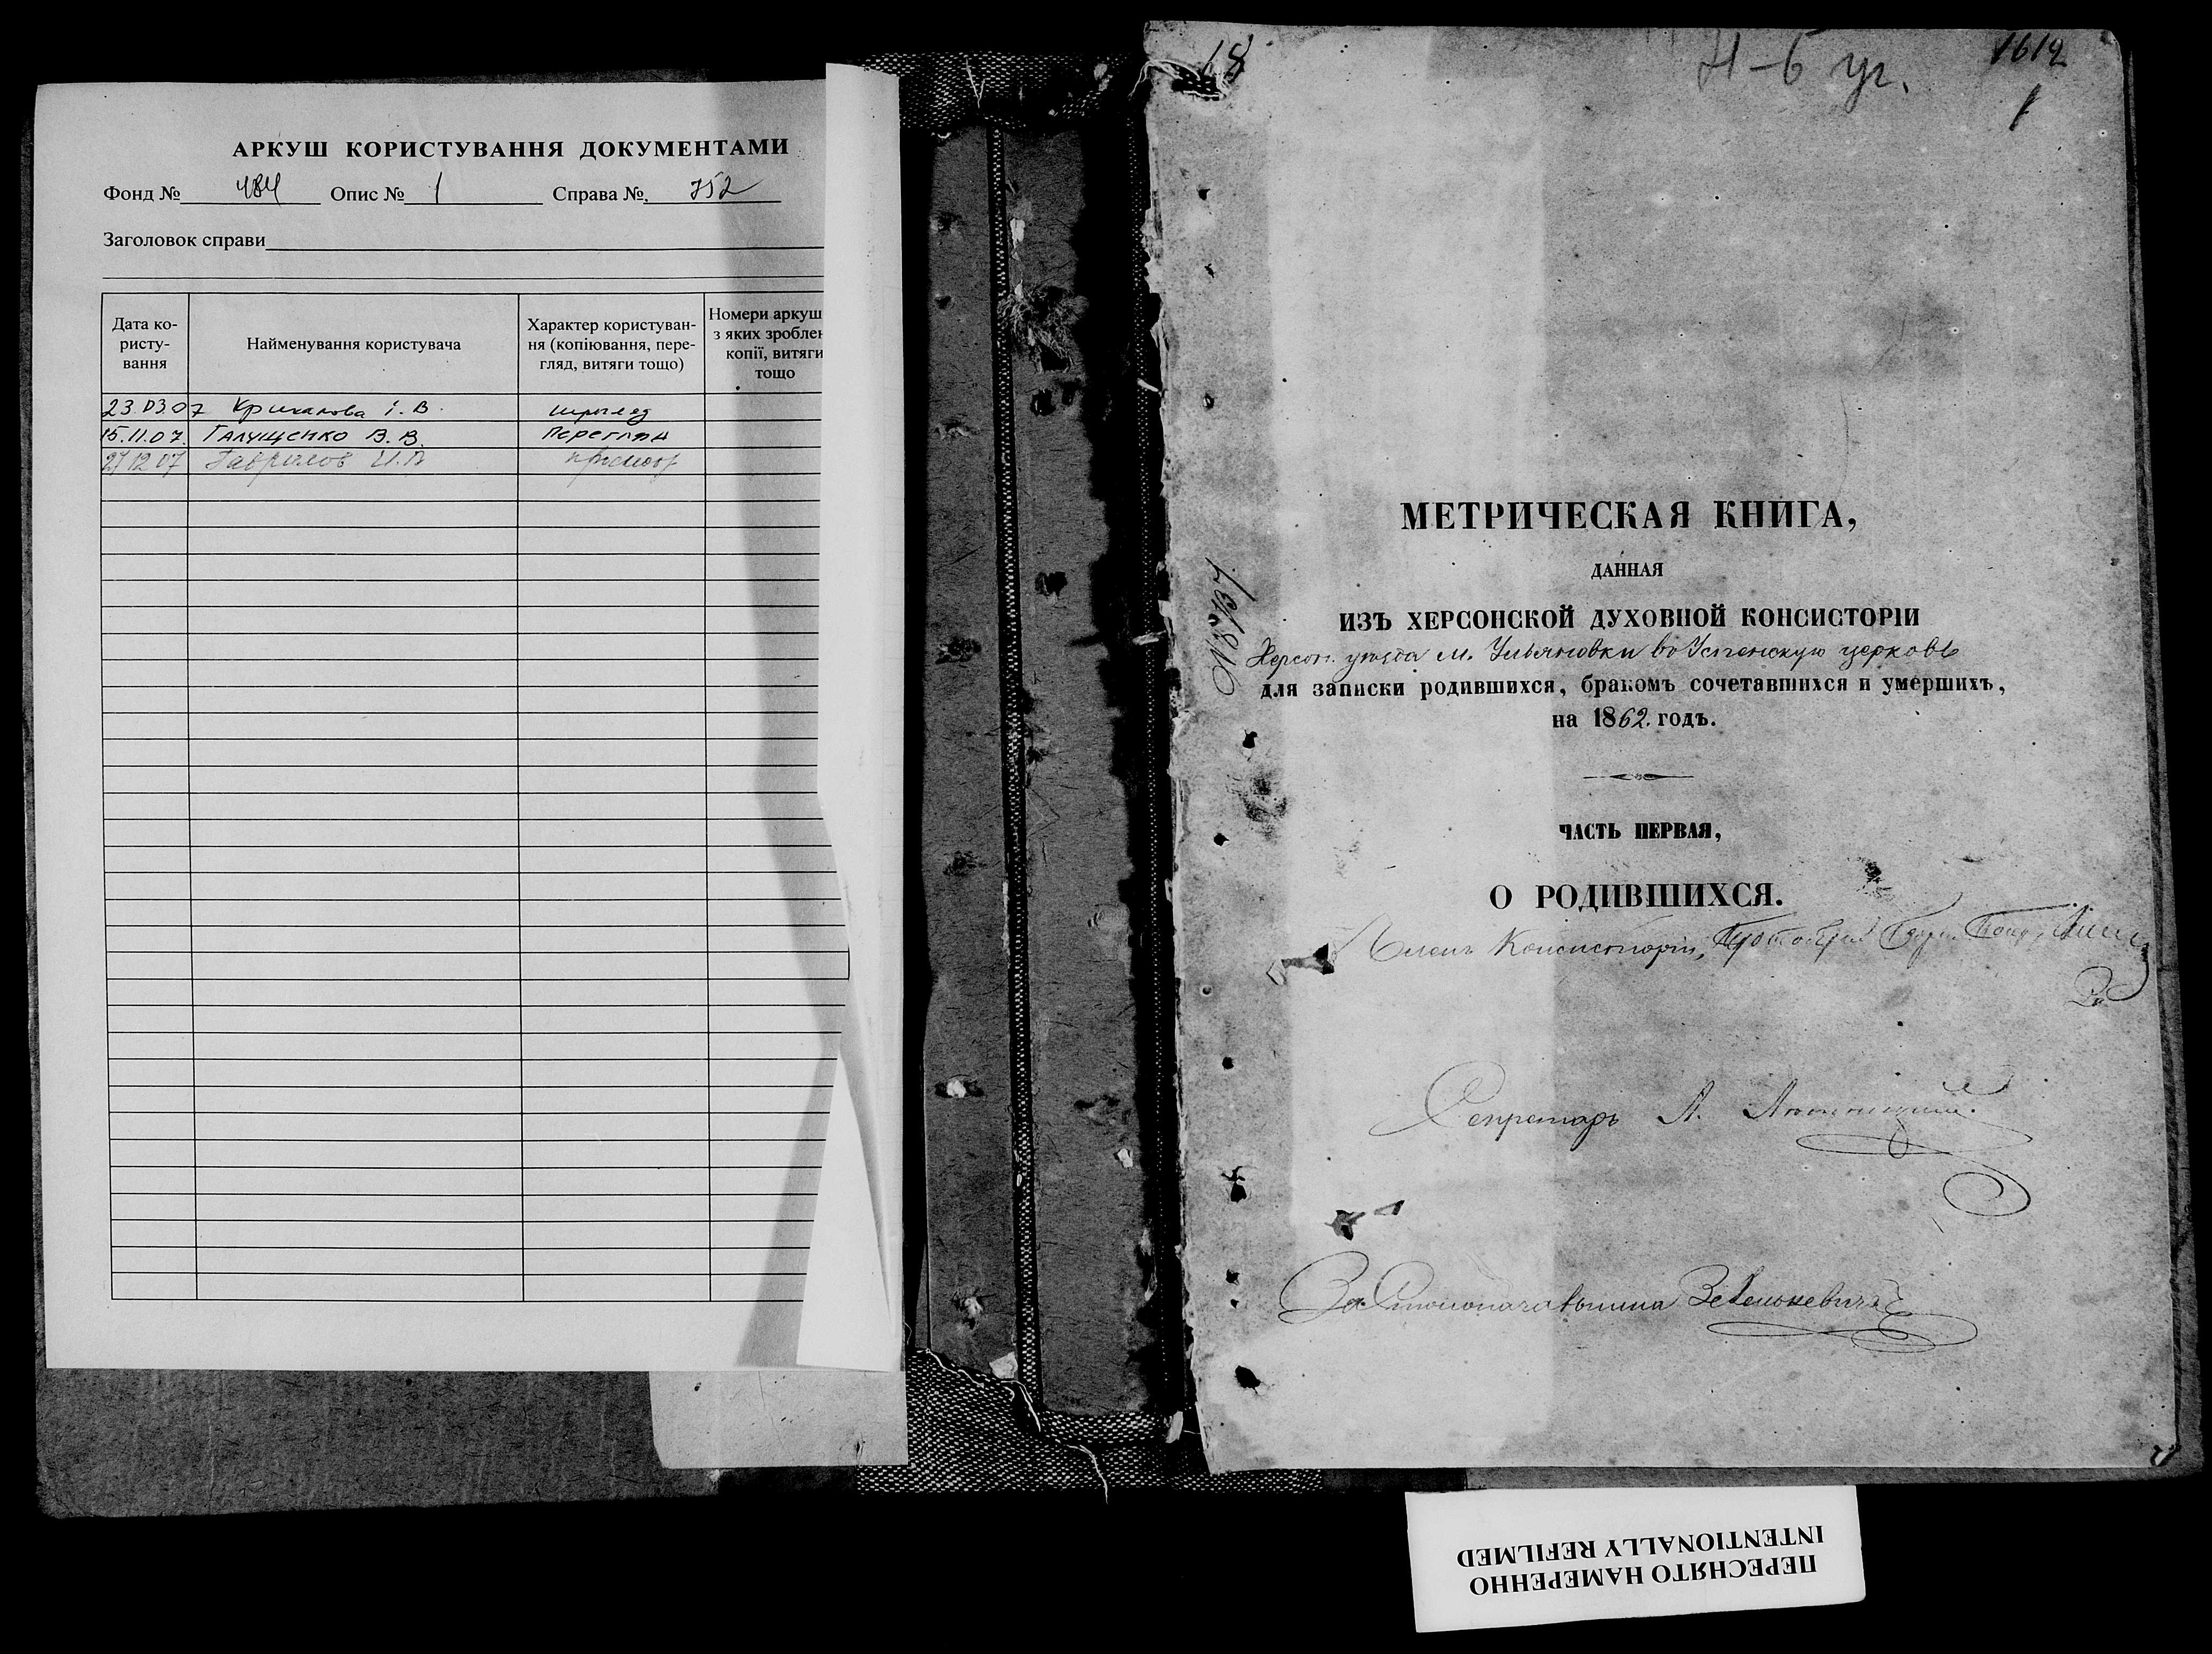 АРКУШ КОРИСТУВАННЯ ДОКУМЕНТАМИ
Фонд № 484 Опис № 1 Справа № 752
Заголовок справи
Дата ко-
ристу-
вання
Найменування користувача
Характер користуван-
ня (копіювання, пере-
гляд, витяги тощо)
Номери аркуш
з яких зроблен
копії, витяги
тощо
23.03.07 І. В.
15.11.07. Галущенко В. В. Перегляд
27 12 07 Гаврилов
18
1612
1
МЕТРИЧЕСКАЯ КНИГА,
ДАННАЯ
ИЗЪ ХЕРСОНСКОЙ ДУХОВНОЙ КОНСИСТОРІИ
Херсон. уѣзда м. Ульяновки во Успенскую церковь
для записки родившихся, бракомъ сочетавшихся и умершихъ,
на 1862. годъ.
ЧАСТЬ ПЕРВАЯ,
О РОДИВШИХСЯ.
Членъ Консисторіи, Протоіерей
Секретарь А.
За Столоначальника
ПЕРЕСНЯТО НАМЕРЕННО
INTENTIONALLY REFILMED